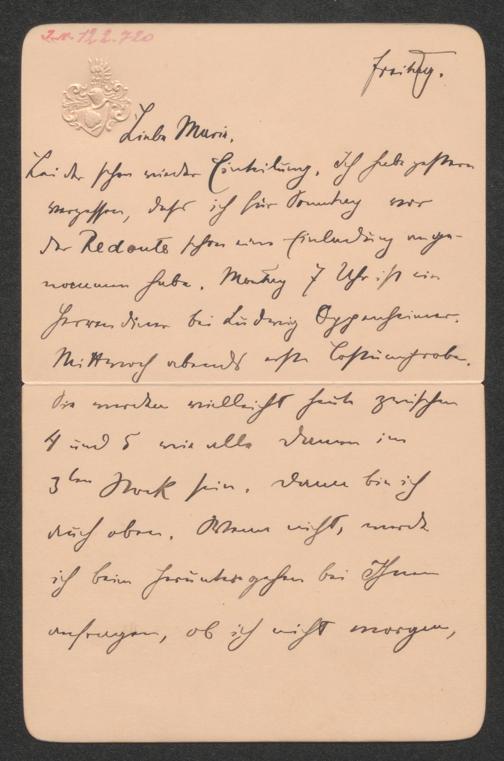 I.N. 122.720
Freitag.
Liebe Marie,
Leider schon wieder Eintheilung. Ich habe gestern
vergessen, daſs ich für Sonntag vor
der Redoute schon eine Einladung ange-
nommen habe. Montag 7 Uhr ist ein
Herrendiner bei Ludwig Oppenheimer.
Mittwoch abends erste Costümprobe.
Sie werden vielleicht heute zwischen
4 und 5 wie alle Damen im
3ten Stock sein. Dann bin ich
auch oben. Wenn nicht, werde
ich beim Heruntergehen bei Ihnen
anfragen, ob ich nicht morgen,